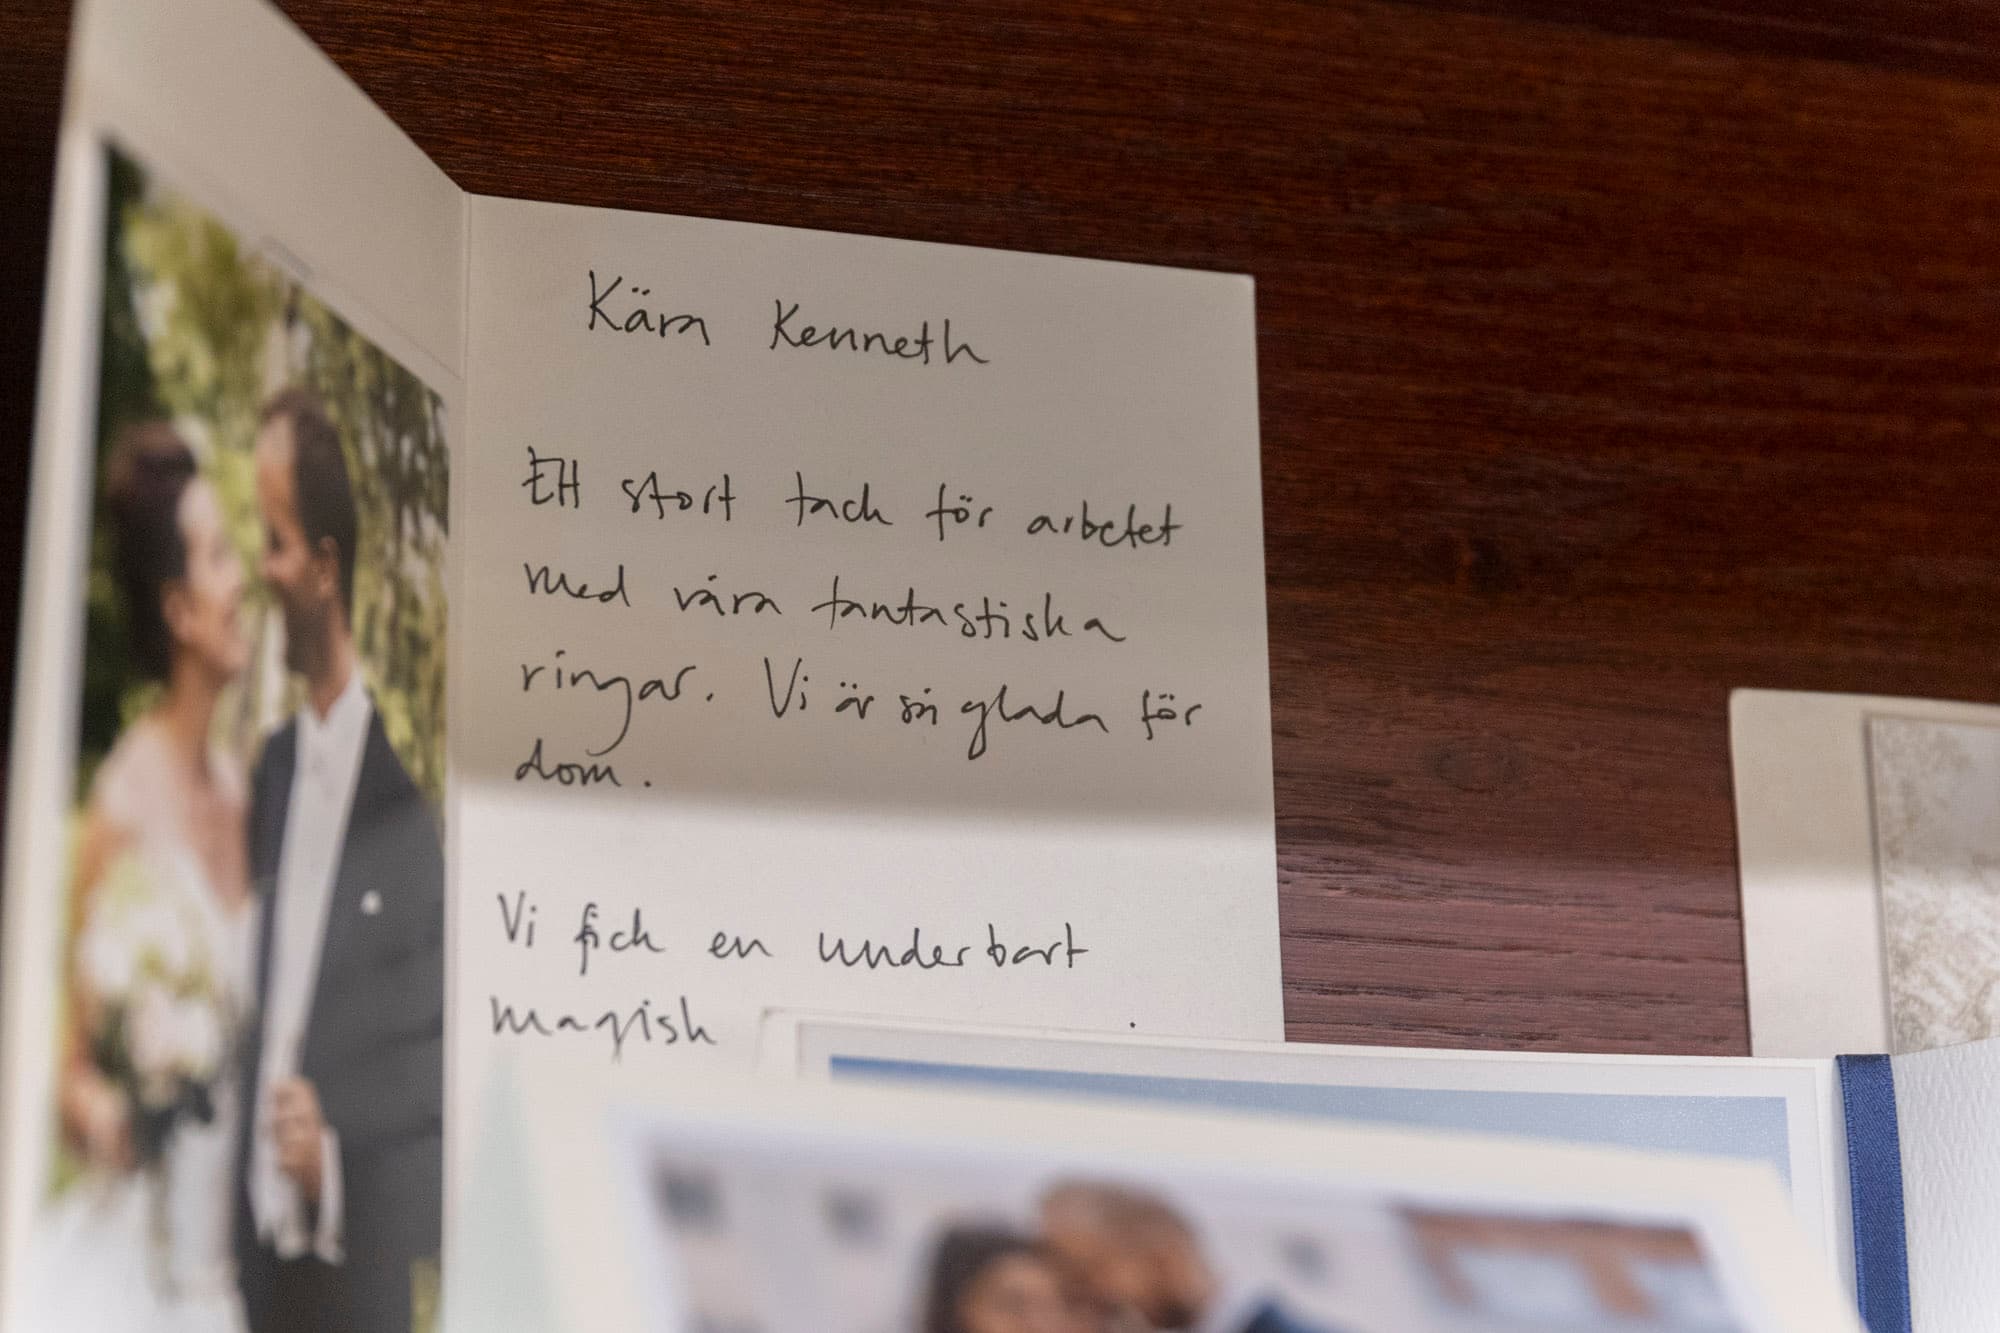 Kära Kenneth
Ett stort tack för arbetet
med våra fantastiska
ringar. Vi är så glada för
dom.
Vi fick en underbart
magisk